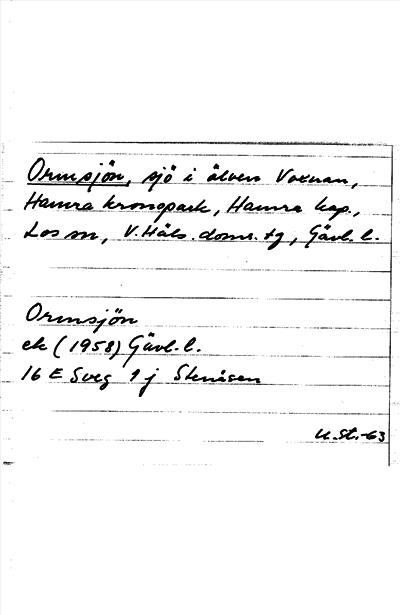 Ormsjön, sjö i älven Voxnan,
Hamra kronopark, Hamra kap.,
Los sn, V. Häls. doms. tg, Gävl. l.
Ormsjön
ek (1958) Gävl. l.
16 E Sveg 9 j Stenåsen
U.St.-63